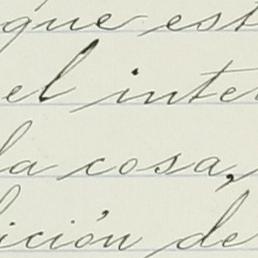 que est
el inter
la cosa,
ición de